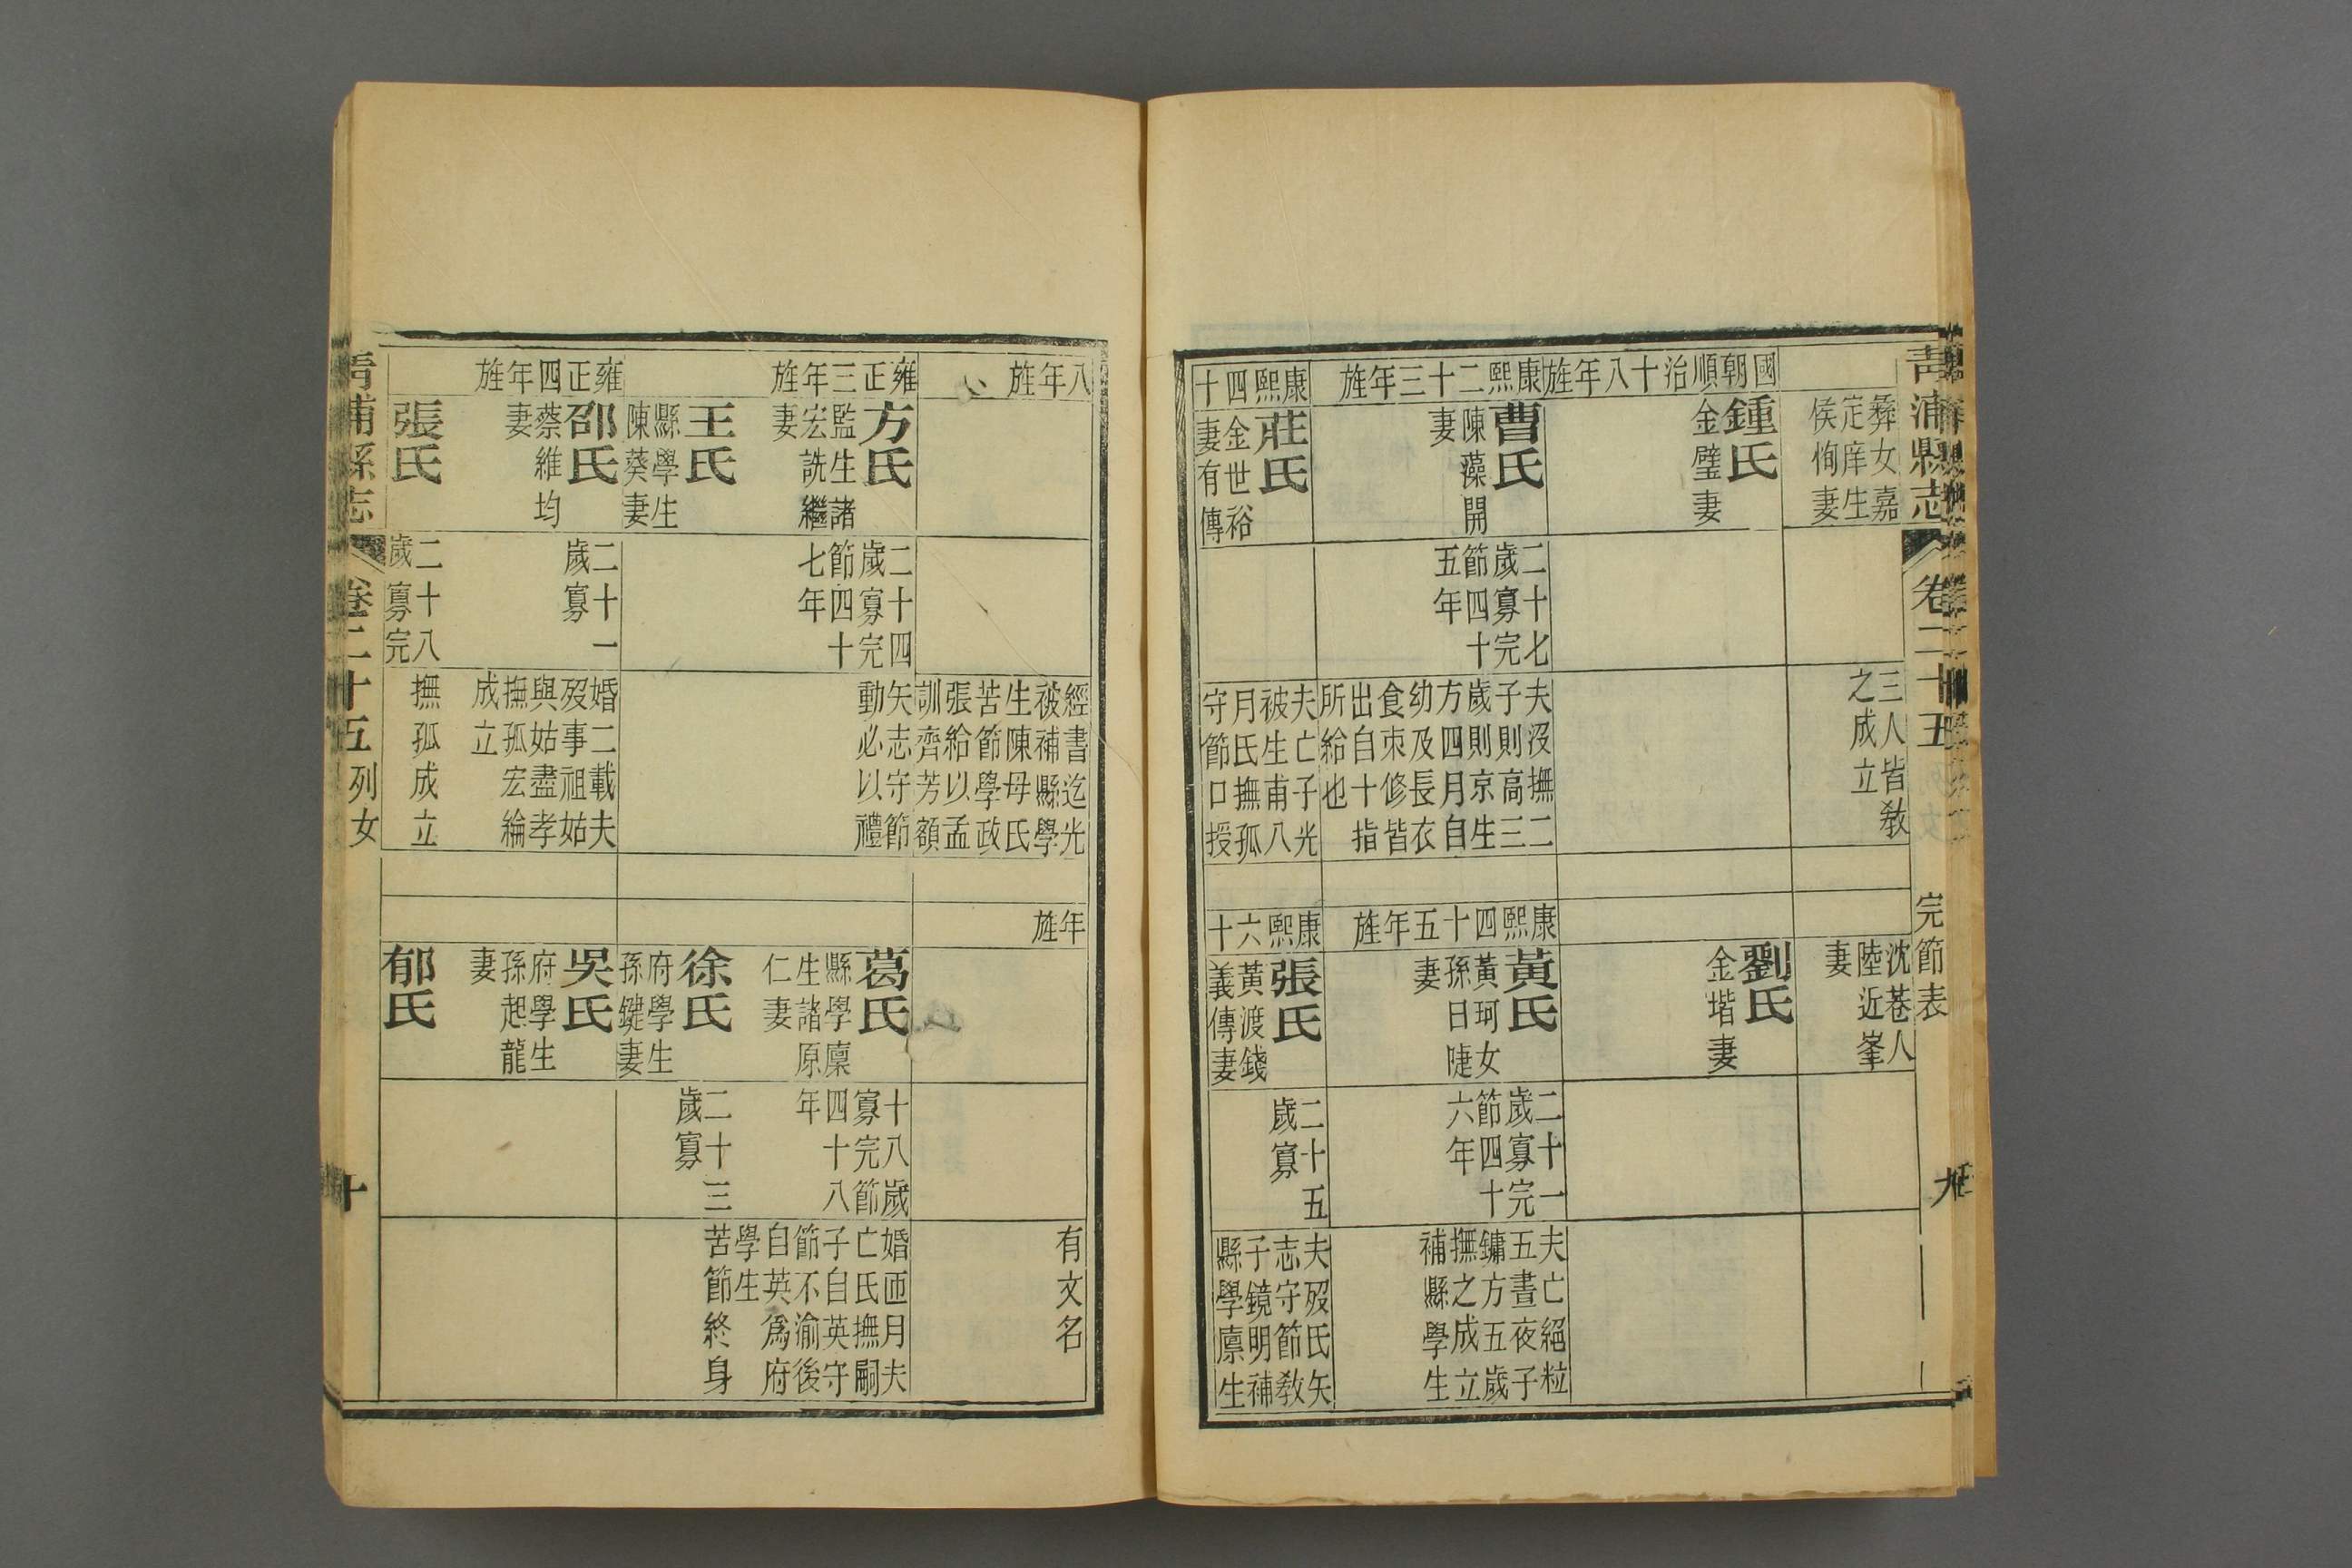 青浦縣志
卷二十五
完節表
九
彝女嘉
定庠生
侯恂妻
三人皆教
之成立
沈巷人
陸近峯
妻
國朝順治十八年旌
鍾氏
金璧妻
劉氏
金堦妻
康熙二十三年旌
曹氏
陳藻開
妻
二十七
歲寡完
節四十
五年
夫沒撫二
子則高三
歲則京生
方四月自
幼及長衣
食束修皆
出自十指
所給也
康熙四十五年旌
黃氏
黃珂女
孫日啑
妻
二十一
歲寡完
節四十
六年
夫亡絕粒
五晝夜子
鏞方五歲
撫之成立
補縣學生
康熙四十
莊氏
金世裕
妻有傳
夫亡子光
被生甫八
月氏撫孤
守節口授
康熙六十
張氏
黃渡錢
義傳妻
二十五
歲寡
夫歿氏矢
志守節教
子鏡明補
縣學廪生
八年旌
經書迄光
被補縣學
生陳母氏
苦節學政
張給以孟
訓齊芳額
年旌
有文名
雍正三年旌
方氏
監生諸
宏詵繼
妻
二十四
歲寡完
節四十
七年
矢志守節
動必以禮
葛氏
縣學廪
生諸原
仁妻
十八歲
寡完節
四十八
年
婚匝月夫
亡氏撫嗣
子自英守
節不渝後
自英為府
學生
王氏
縣學生
陳葵妻
徐氏
府學生
孫鍵妻
二十三
歲寡
苦節終身
雍正四年旌
邵氏
蔡維均
妻
二十一
歲寡
婚二載夫
歿事祖姑
與姑盡孝
撫孤宏綸
成立
吳氏
府學生
孫起龍
妻
張氏
二十八
歲寡完
撫孤成立
郁氏
青浦縣志
卷二十五
列女
十